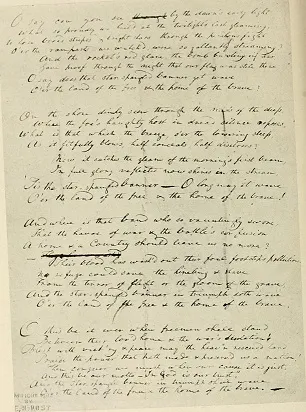 O say can you see by the dawn's early light
What so proudly we hail'd at the twilight's last gleaming,
Whose broad stripes & bright stars through the perilous fight
O'er the ramparts we watch'd, were so gallantly streaming?
And the rocket's red glare, the bomb bursting in air,
Gave proof through the night that our flag was still there
O say does that star-spangled banner yet wave
O'er the land of the free & the home of the brave?
On the shore dimly seen through the mists of the deep,
Where the foe's haughty host in dread silence reposes,
What is that which the breeze, o'er the towering steep,
As it fitfully blows, half conceals, half discloses?
Now it catches the gleam of the morning's first beam,
In full glory reflected now shines in the stream
'Tis the star-spangled banner — O long may it wave
O'er the land of the free & the home of the brave!
And where is that band who so vauntingly swore,
That the havoc of war & the battle's confusion
A home & a Country should leave us no more?
Their blood has wash'd out their foul footsteps pollution
No refuge could save the hireling & slave
From the terror of flight or the gloom of the grave,
And the star-spangled banner in triumph doth wave
O'er the land of the free & the home of the brave.
O thus be it ever when freemen shall stand
Between their lov'd home & the war's desolation!
Blest with vict'ry & peace may the heav'n rescued land
Praise the power that hath made & preserv'd us a nation!
Then conquer we must, when our cause it is just,
And this be our motto — In God is our trust
And the star-spangled banner in triumph shall wave
O'er the land of the free & the home of the brave.